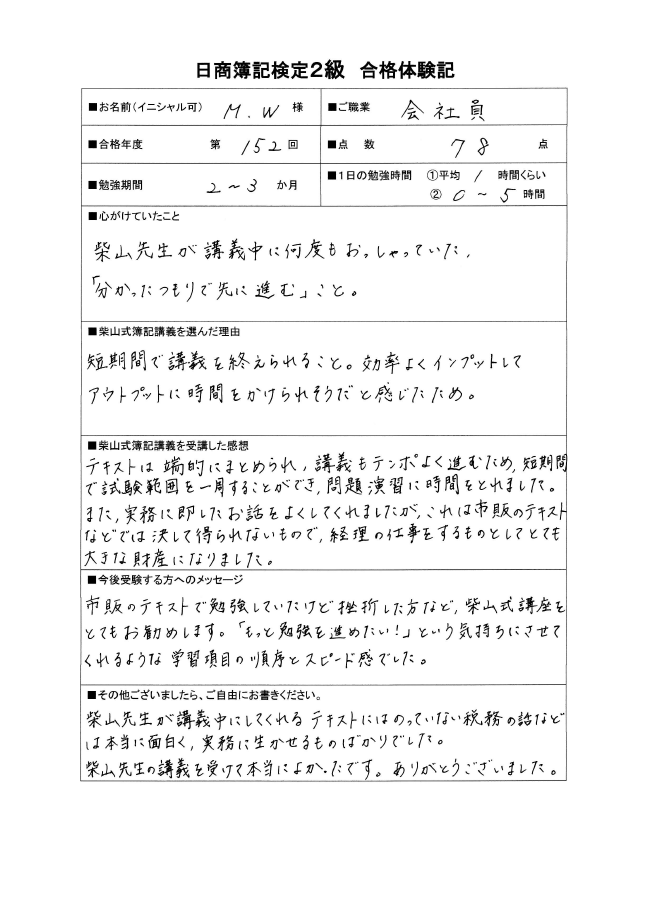 日商簿記検定2級 合格体験記
■お名前(イニシャル可) M.W 様 ■ご職業 会社員
■合格年度 第 152 回 ■点 数 78 点
■勉強期間 2~3 か月 ■1日の勉強時間 ①平均 1 時間くらい
② 0 ~ 5 時間
■心がけていたこと
柴山先生が講義中に何度もおっしゃっていた、
「分かったつもりで先に進む」こと。
■柴山式簿記講義を選んだ理由
短期間で講義を終えられること。効率よくインプットして
アウトプットに時間をかけられそうだと感じたため。
■柴山式簿記講義を受講した感想
テキストは端的にまとめられ、講義もテンポよく進むため、短期間
で試験範囲を一周することができ、問題演習に時間をとれました。
また、実務に即したお話をよくしてくれましたが、これは市販のテキスト
などでは決して得られないもので、経理の仕事をするものとしてとても
大きな財産になりました。
■今後受験する方へのメッセージ
市販のテキストで勉強していたけど挫折した方など、柴山式講座を
とてもお勧めします。「もっと勉強を進めたい!」という気持ちにさせて
くれるような学習項目の順序とスピード感でした。
■その他ございましたら、ご自由にお書きください。
柴山先生が講義中にしてくれるテキストにはのっていない税務の話など
は本当に面白く、実務に生かせるものばかりでした。
柴山先生の講義を受けて本当によかったです。ありがとうございました。